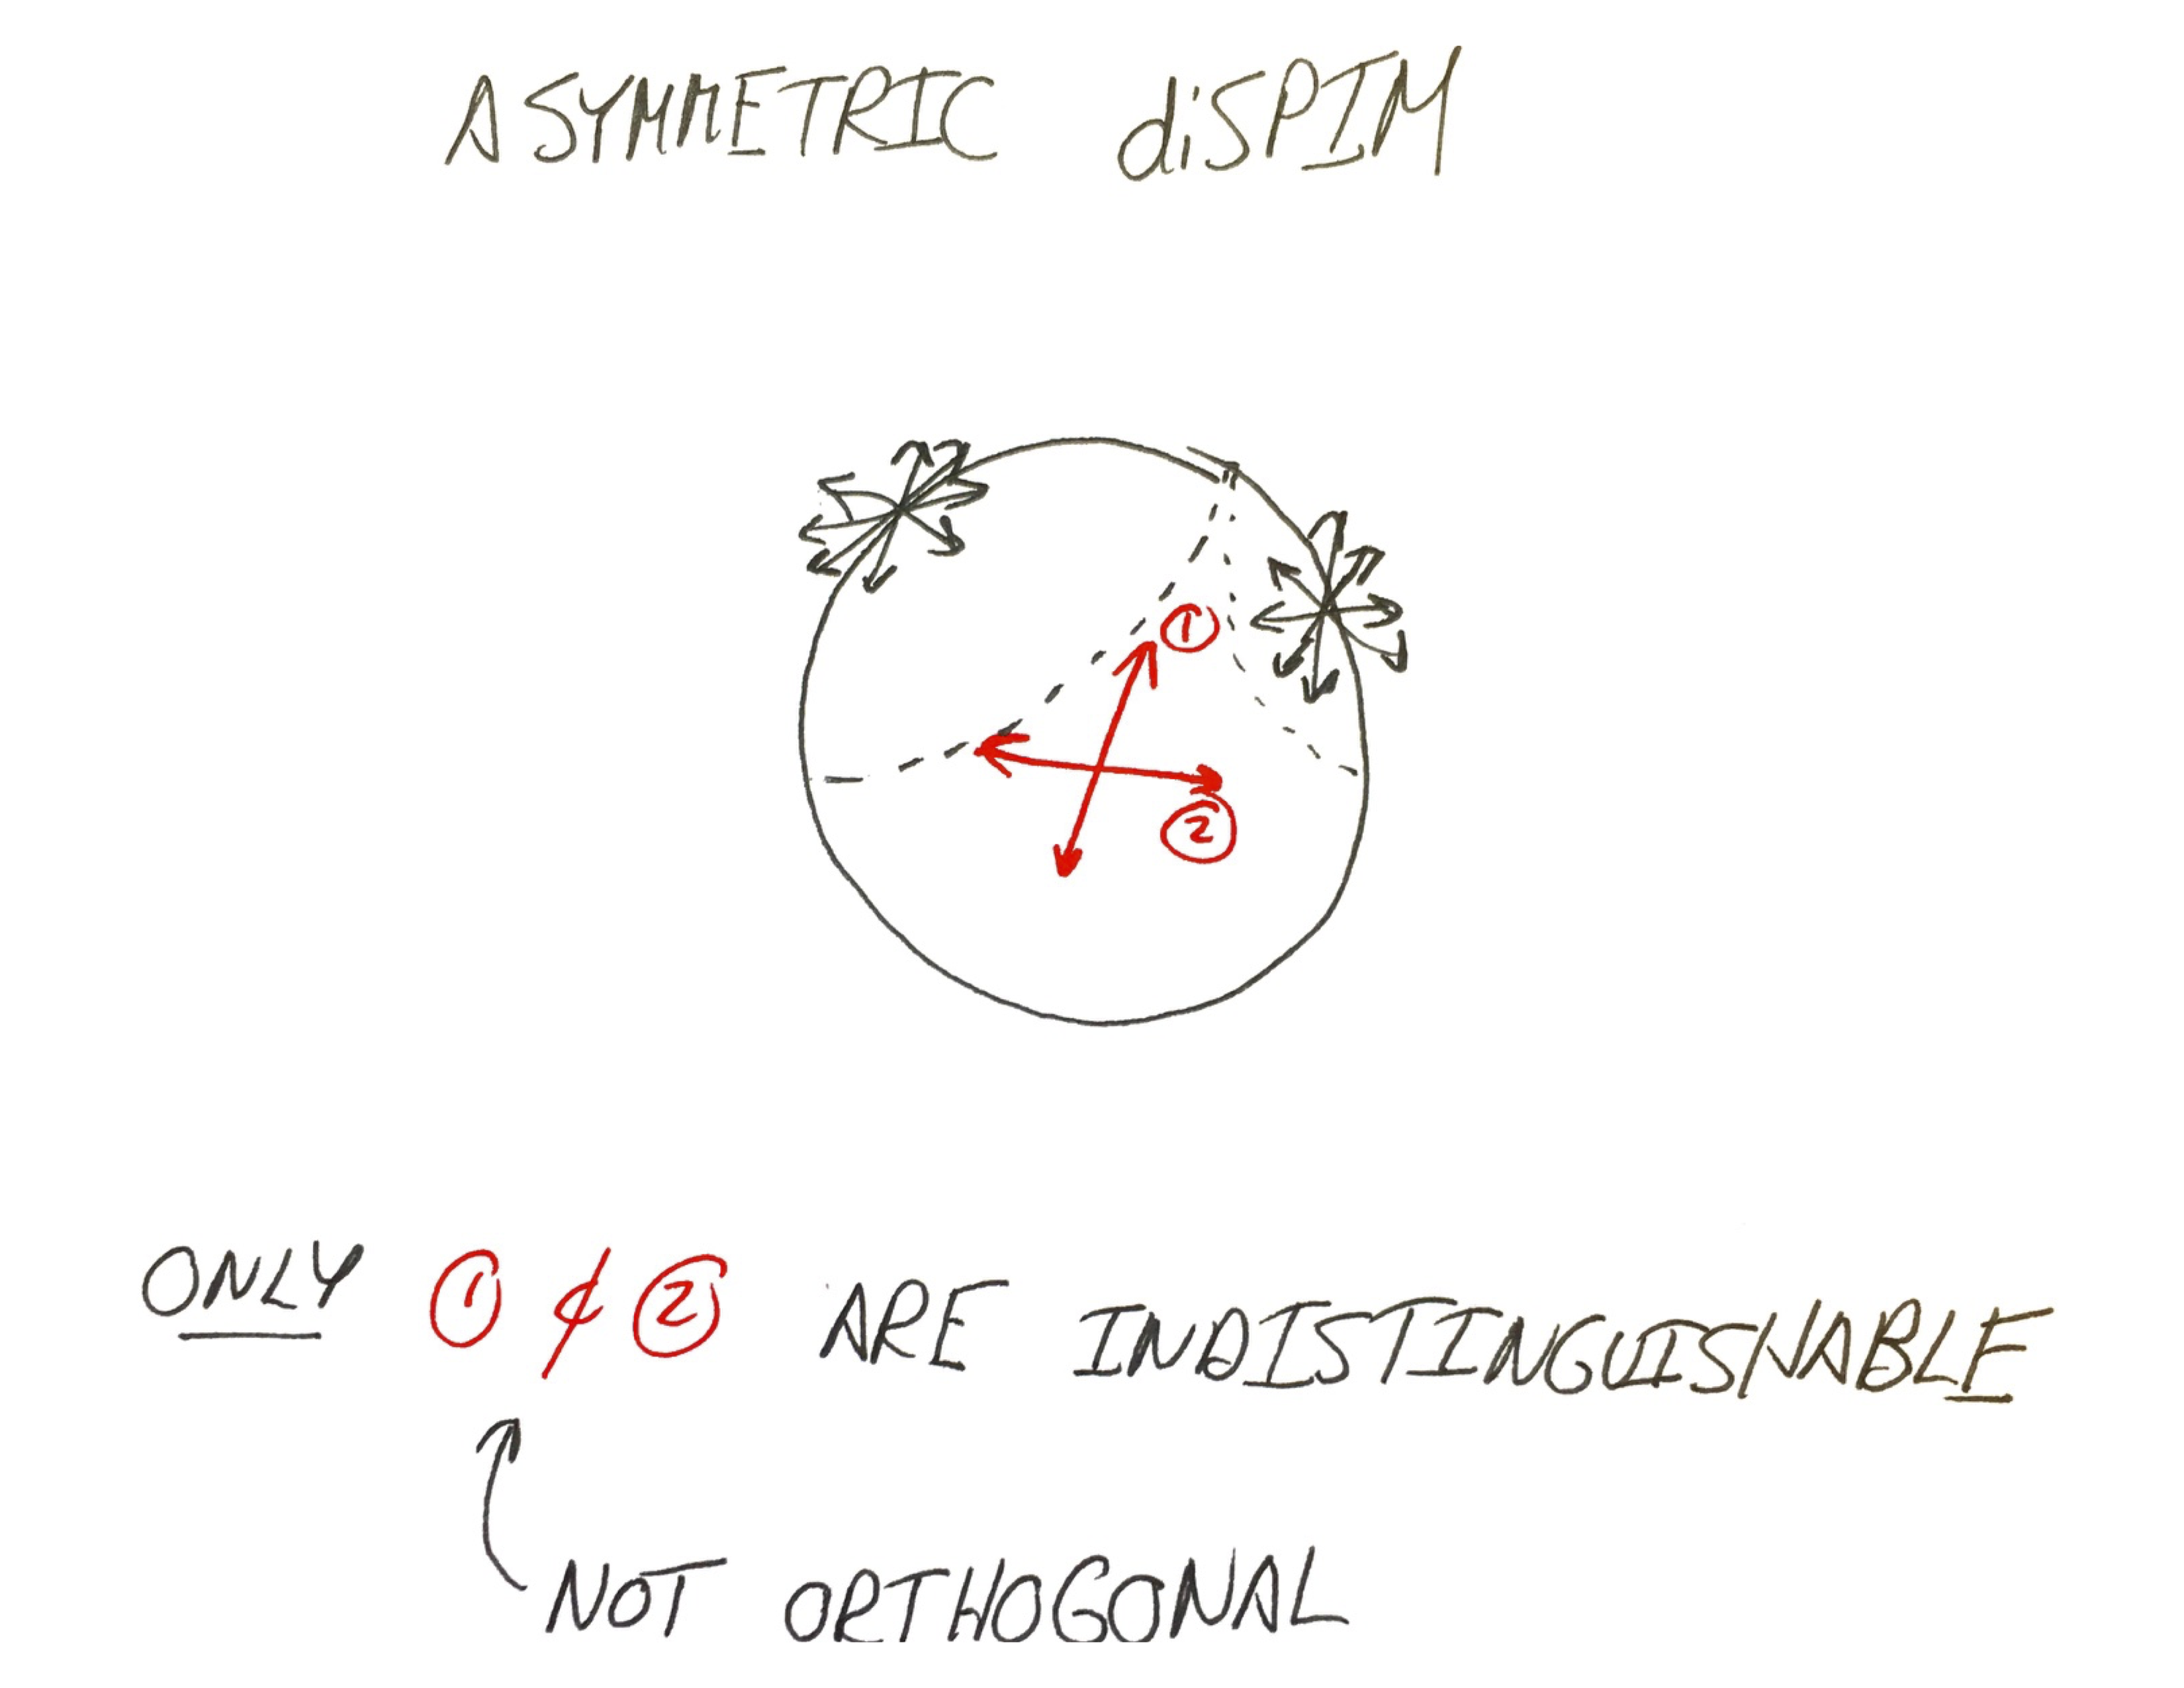 ASYMMETRIC diSPIM
①
②
ONLY ① & ② ARE INDISTINGUISHABLE
NOT ORTHOGONAL